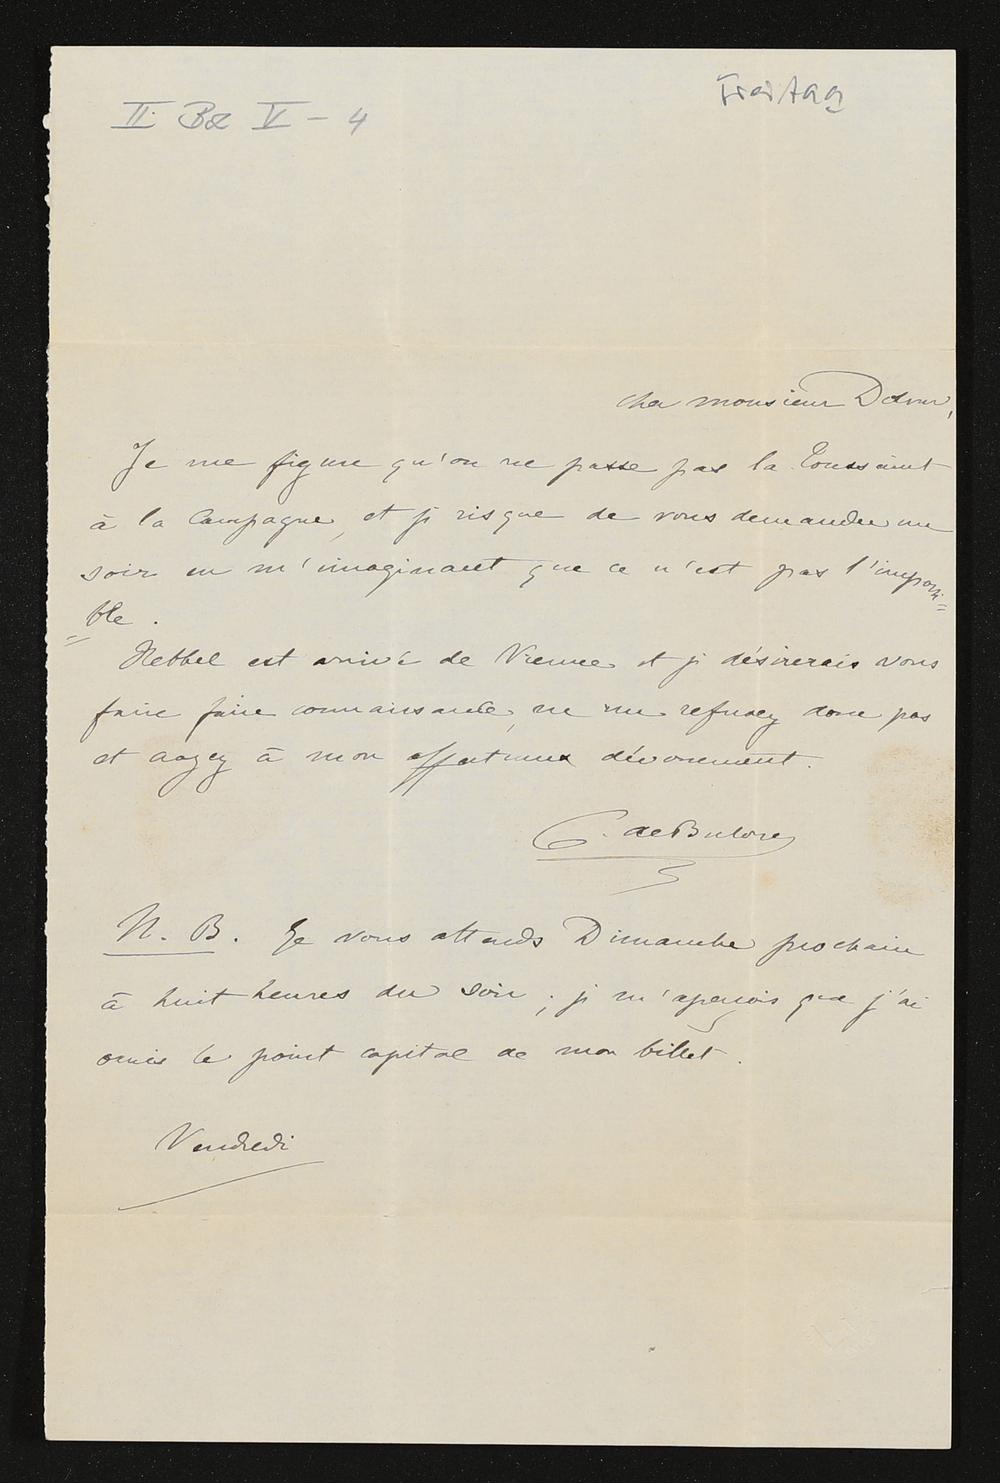 II. Bd V - 4
Freitag
cher monsieur
Je me figure qu'on ne passe pas la Toussaint
à la Campagne, et je risque de vous demander un
soir en m'imaginant que ce n'est pas l'impossi=
=ble.
Hebbel est arrivé de Vienne et je désirerais vous
faire faire connaissance, ne me refusez donc pas
et croyez à mon affectueux dévouement.
C. de Bulow
N. B. Je vous attends Dimanche prochain
à huit heures du soir ; je m'aperçois que j'ai
omis le point capital de mon billet.
Vendredi